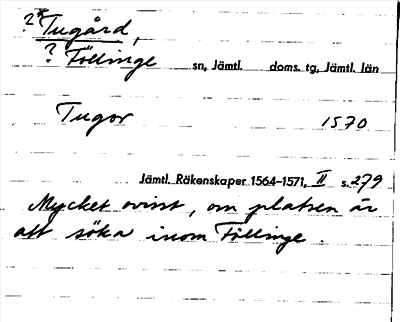 ? *Tugård,
? Föllinge sn, Jämtl. doms. tg, Jämtl. län
Tugor 1570
Jämtl. Räkenskaper 1564–1571, II s. 279
Mycket ovisst, om platsen är
att söka inom Föllinge.